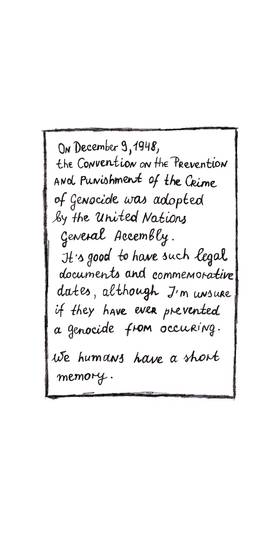 On December 9, 1948,
the Convention on the Prevention
and Punishment of the Crime
of Genocide was adopted
by the United Nations
General Assembly.
It's good to have such legal
documents and commemorative
dates, although I'm unsure
if they have ever prevented
a genocide from occuring.
We humans have a short
memory.